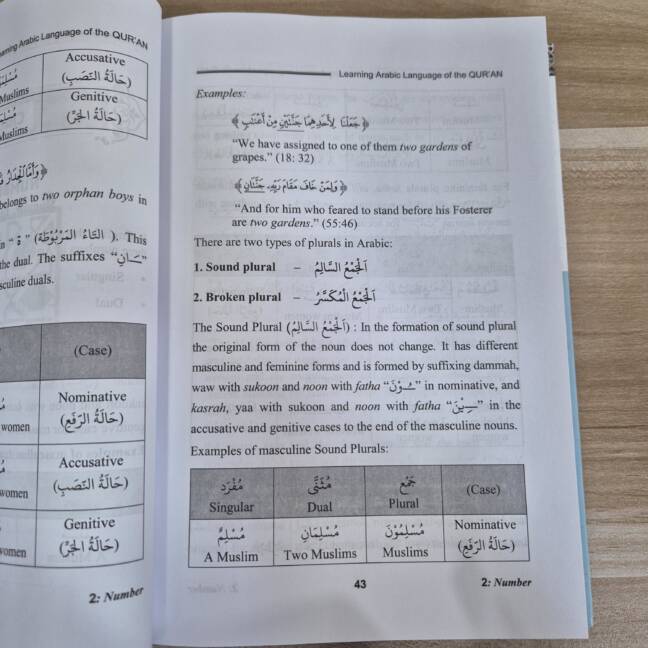 Learning Arabic Language of the QUR'AN
Accusative
(حَالَةُ النَّصَبِ)
Muslims
Genitive
(حَالَةُ الْجَرِّ)
Muslims
belongs to two orphan boys in
“ ة ” (التَّاءُ المَرْبُوْطَة). This
the dual. The suffixes “ ـَـانِ ”
duals.
(Case)
Nominative
women
(حَالَةُ الرَّفَعِ)
Accusative
women
(حَالَةُ النَّصَبِ)
Genitive
women
(حَالَةُ الْجَرِّ)
2: Number
Learning Arabic Language of the QUR'AN
Examples:
﴿ جَعَلْنَا لِأَحَدِهِمَا جَنَّتَيْنِ مِنْ أَعْنَٰبٍ ﴾
“We have assigned to one of them two gardens of
grapes.” (18: 32)
﴿ وَلِمَنْ خَافَ مَقَامَ رَبِّهِۦ جَنَّتَانِ ﴾
“And for him who feared to stand before his Fosterer
are two gardens.” (55:46)
There are two types of plurals in Arabic:
1. Sound plural – اَلْجَمْعُ السَّالِمُ
2. Broken plural – اَلْجَمْعُ الْمُكَسَّرُ
The Sound Plural (اَلْجَمْعُ السَّالِمُ) : In the formation of sound plural
the original form of the noun does not change. It has different
masculine and feminine forms and is formed by suffixing dammah,
waw with sukoon and noon with fatha “ـُـوْنَ” in nominative, and
kasrah, yaa with sukoon and noon with fatha “ـِـيْنَ” in the
accusative and genitive cases to the end of the masculine nouns.
Examples of masculine Sound Plurals:
مُفْرَد مُثَنَّى جَمْع
Singular Dual Plural (Case)
مُسْلِمٌ مُسْلِمَانِ مُسْلِمُوْنَ Nominative
A Muslim Two Muslims Muslims (حَالَةُ الرَّفَعِ)
43 2: Number